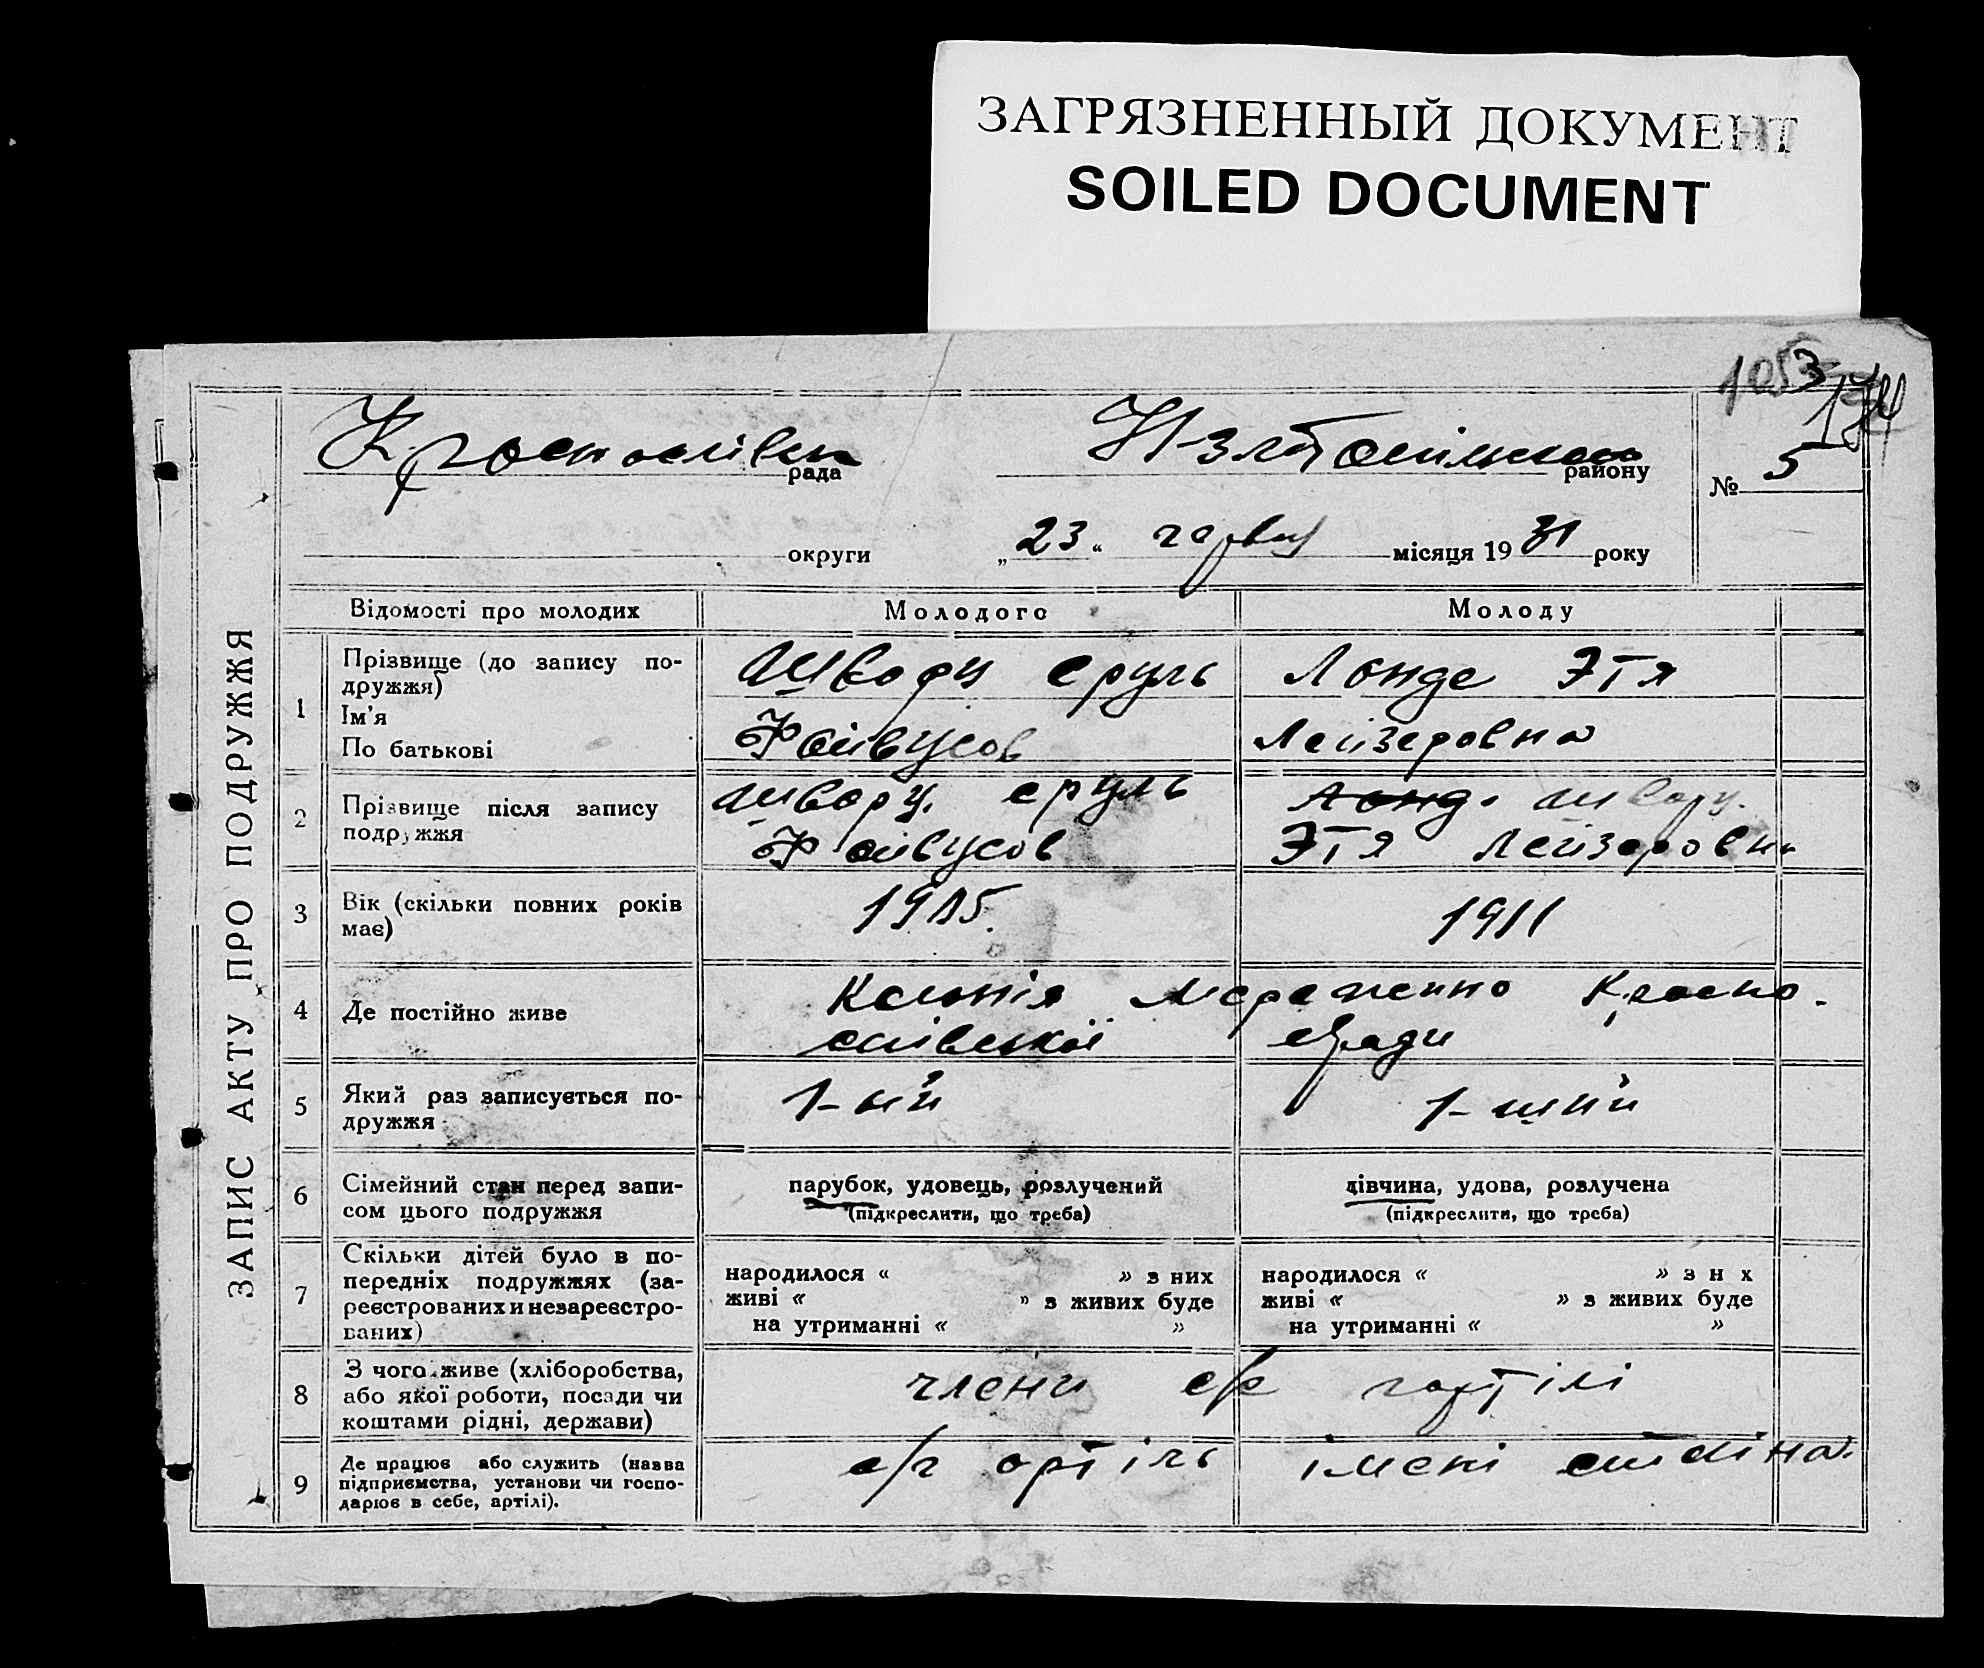 ЗАГРЯЗНЕННЫЙ ДОКУМЕНТ
SOILED DOCUMENT
1053
174
рада
району
№ 5
округи „23“ червня місяця 1931 року
ЗАПИС АКТУ ПРО ПОДРУЖЖЯ
Відомості про молодих Молодого Молоду
1 Прізвище (до запису по-
дружжя)
Ім'я
По батькові
Шварц Сруль
Файвусов
Лонде Этя
Лейзеровна
2 Прізвище після запису
подружжя
Шварц. Сруль
Файвусов
Шварц.
Этя Лейзеровна
3 Вік (скільки повних років
має)
1905.
1911
4 Де постійно живе
Колонія Красно-
сілівської с/ради
5 Який раз записується по-
дружжя
1-ий
1-ший
6 Сімейний стан перед запи-
сом цього подружжя
парубок, удовець, розлучений
(підкреслити, що треба)
дівчина, удова, розлучена
(підкреслити, що треба)
7 Скільки дітей було в по-
передніх подружжях (за-
реєстрованих и незареєстро-
ваних)
народилося « » з них
живі « » з живих буде
на утриманні « »
народилося « » з н х
живі « » з живих буде
на утриманні « »
8 З чого живе (хліборобства,
або якої роботи, посади чи
коштами рідні, держави)
члени с/г артілі
9 Де працює або служить (назва
підприємства, установи чи госпо-
дарює в себе, артілі).
с/г артіль імені Сталіна.